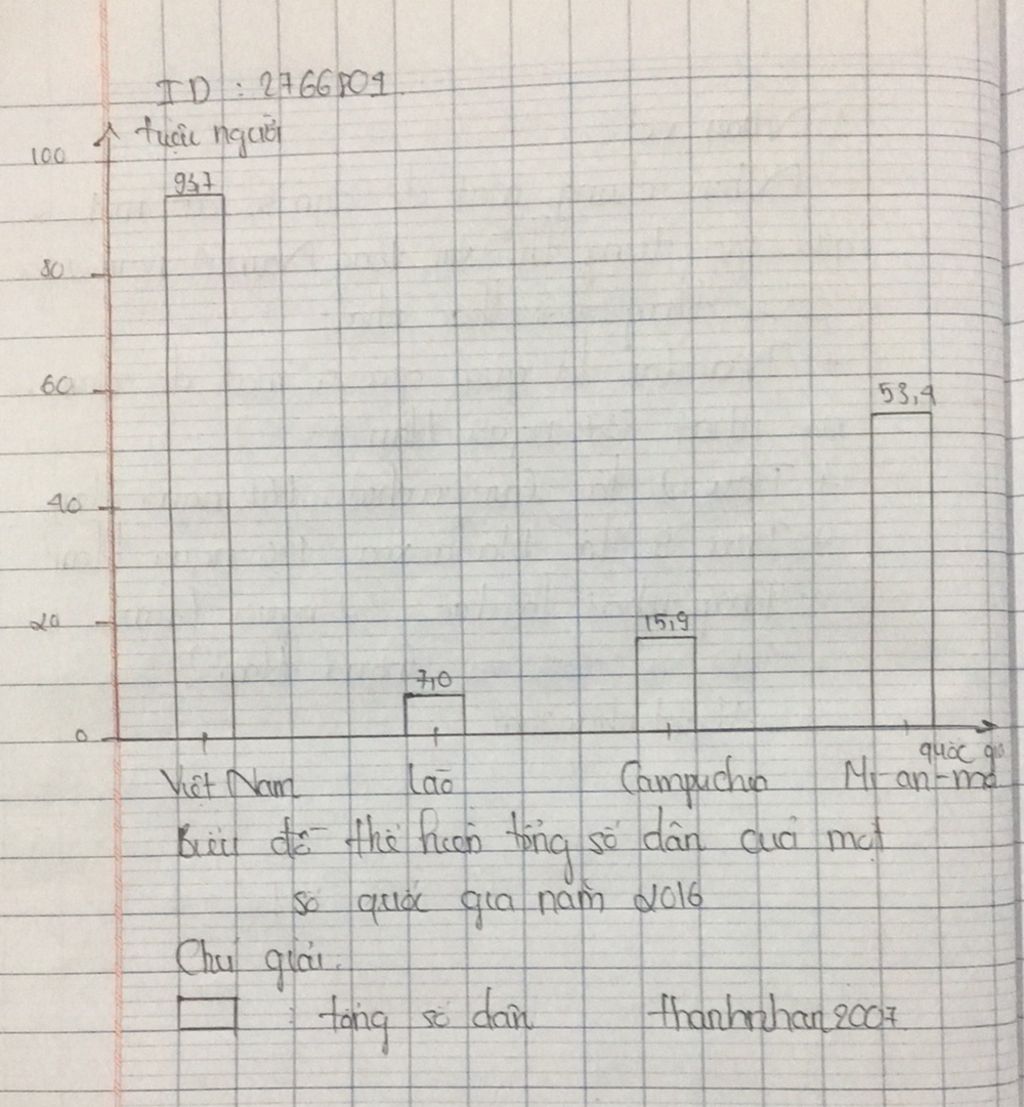 ID : 2766809
triệu người
100
93,7
80
60
53,4
40
20
15,9
7,0
0
quốc gia
Việt Nam Lào Campuchia Mi-an-ma
Biểu đồ thể hiện tổng số dân của một
số quốc gia năm 2016
Chú giải.
: tổng số dân thanhnhan2007